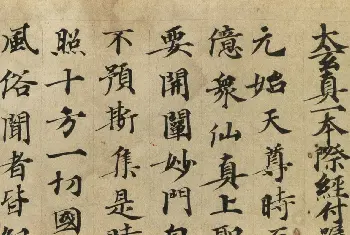 太玄真一本際經付囑
元始天尊時
億衆仙真上聖
要開闡妙門
不預斯集是時
照十方一切國
風俗聞者皆